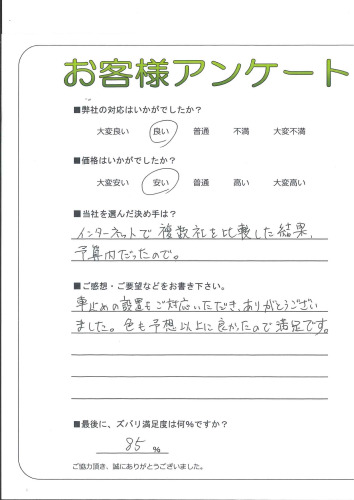 お客様アンケート
■弊社の対応はいかがでしたか?
大変良い 良い 普通 不満 大変不満
■価格はいかがでしたか?
大変安い 安い 普通 高い 大変高い
■当社を選んだ決め手は?
インターネットで複数社を比較した結果、
予算内だったので。
■ご感想・ご要望などをお書き下さい。
車止めの設置もご対応いただき、ありがとうござい
ました。色も予想以上に良かったので満足です。
■最後に、ズバリ満足度は何%ですか?
85 %
ご協力頂き、誠にありがとうございました。